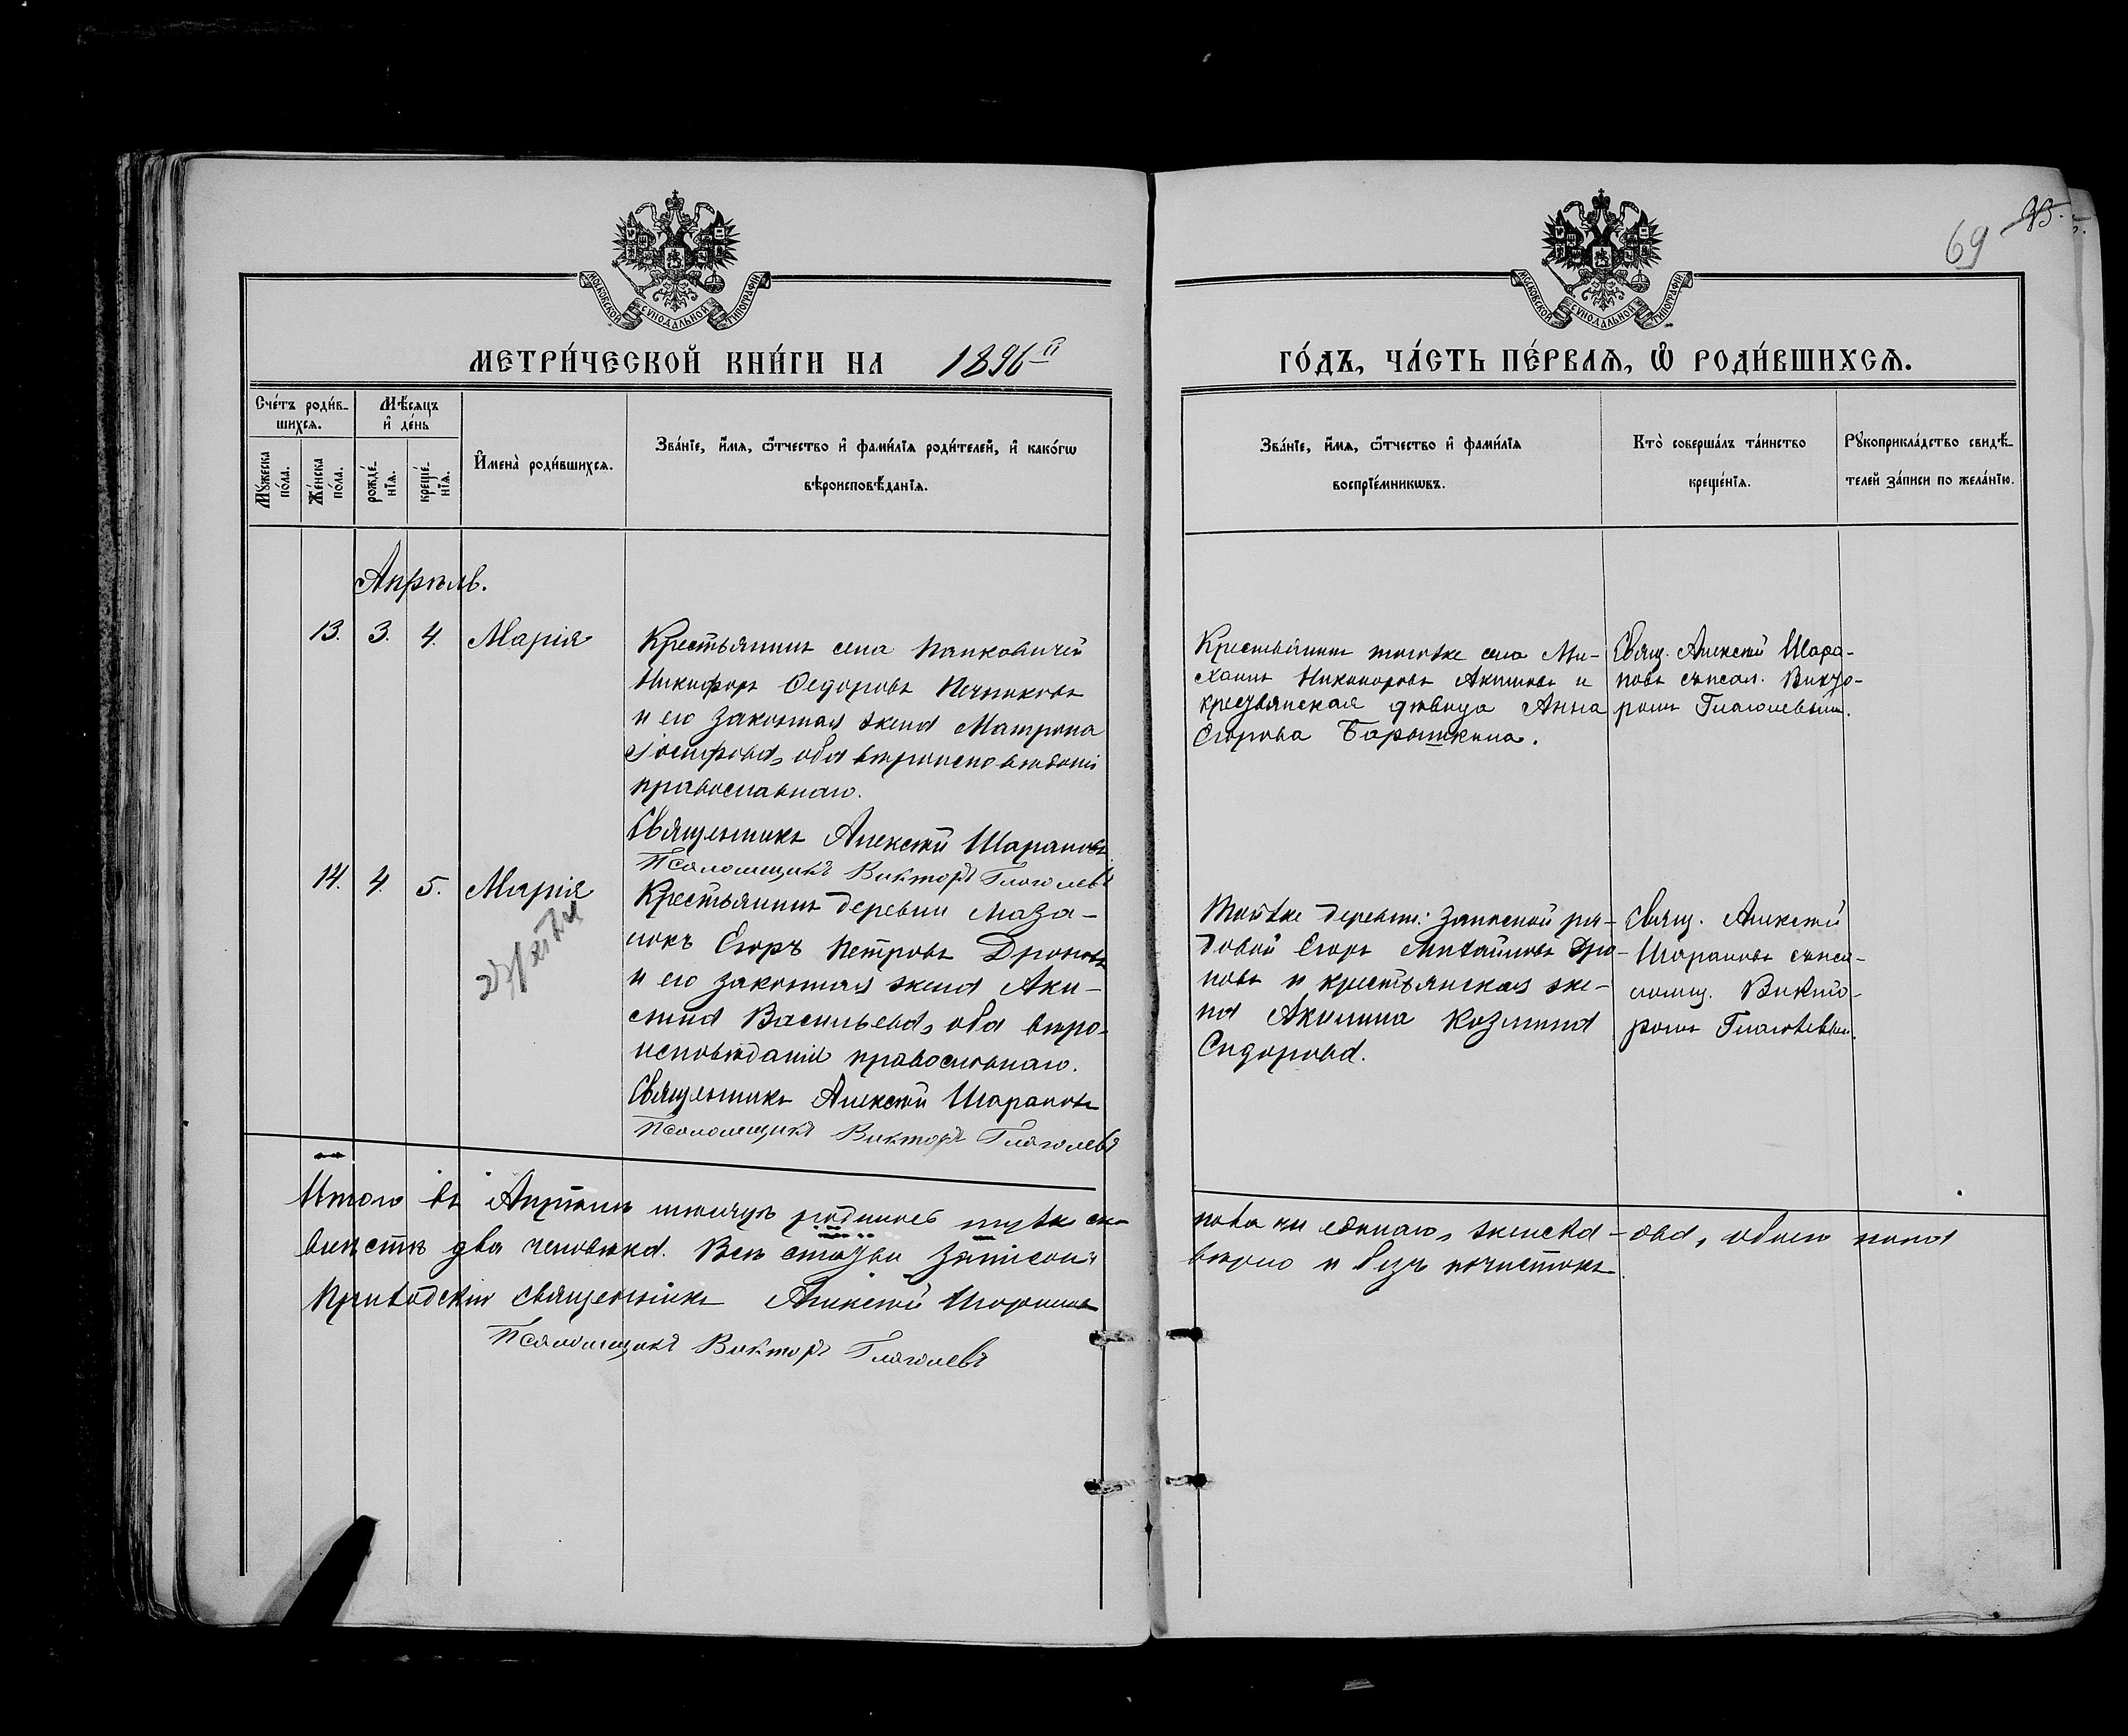 69 93.
МОСКОВСКОЙ СѴНОДАЛЬНОЙ ТИПОГРАФІИ
МОСКОВСКОЙ СѴНОДАЛЬНОЙ ТИПОГРАФІИ
МЕТРИ́ЧЕСКОЙ КНИ́ГИ НА 1896й
ГО́ДЪ, ЧА́СТЬ ПЕ́РВАѦ, Ѽ РОДИ́ВШИХСѦ.
Сче́тъ роди́в-
шихсѧ.
Мꙋ́жеска по́ла.
Же́нска по́ла.
Мѣ́сѧцъ
и҆ де́нь
рожде́-нїѧ.
креще́-нїѧ.
И҆мена̀ роди́вшихсѧ.
Зва́нїе, и҆́мѧ, ѻ҆́тчество и҆ фами́лїѧ роди́телей, и҆ како́гѡ
вѣроисповѣ́данїѧ.
Зва́нїе, и҆́мѧ, ѻ҆́тчество и҆ фами́лїѧ
воспрїе́мникѡвъ.
Кто̀ соверша́лъ та́инство
креще́нїѧ.
Рꙋкоприкла́дство свидѣ́-
телей за́писи по жела́нїю.
Апрѣль.
13. 3. 4. Марія
Крестьянинъ села Папковичей
Никифоръ Ѳедоровъ Печниковъ
и его законная жена Матрона
Іосифова, оба вѣроисповѣданія
православнаго.
Священникъ Алексѣй Шараповъ
Псаломщикъ Викторъ Глаголевъ
Крестьянинъ того же села Ми-
хаилъ Никаноровъ Акимовъ и
крестьянская дѣвица Анна
Егорова Барышкина.
Свящ. Алексѣй Шара-
повъ съ псал. Викто-
ромъ Глаголевымъ.
14. 4. 5. Марія
Крестьянинъ деревни Маза-
локъ Егоръ Петровъ Дроновъ
и его законная жена Аки-
лина Васильева, оба вѣро-
исповѣданія православнаго.
Священникъ Алексѣй Шараповъ
Псаломщикъ Викторъ Глаголевъ
Той же деревни: запасной ря-
довой Егоръ Михайловъ Дро-
новъ и крестьянская же-
на Акилина Козмина
Сидорова.
Свящ. Алексѣй
Шараповъ съ пса-
ломщ. Викто-
ромъ Глаголевым.
Итого въ Апрѣлѣ мѣсяцѣ родилось мужеска пола ни единаго, женска - два, обоего пола
вмѣстѣ два человѣка. Всѣ статьи записаны вѣрно и безъ почистокъ.
Приходскій священникъ Алексѣй Шараповъ
Псаломщикъ Викторъ Глаголевъ